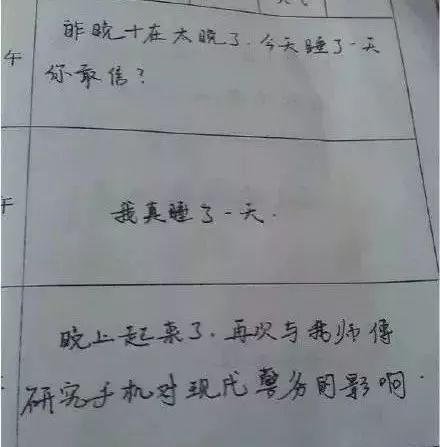 昨晚十在太晚了.今天睡了一天
午
你敢信?
午
我真睡了一天.
晚上起来了.再次与我师傅
研究手机对现代警务的影响.